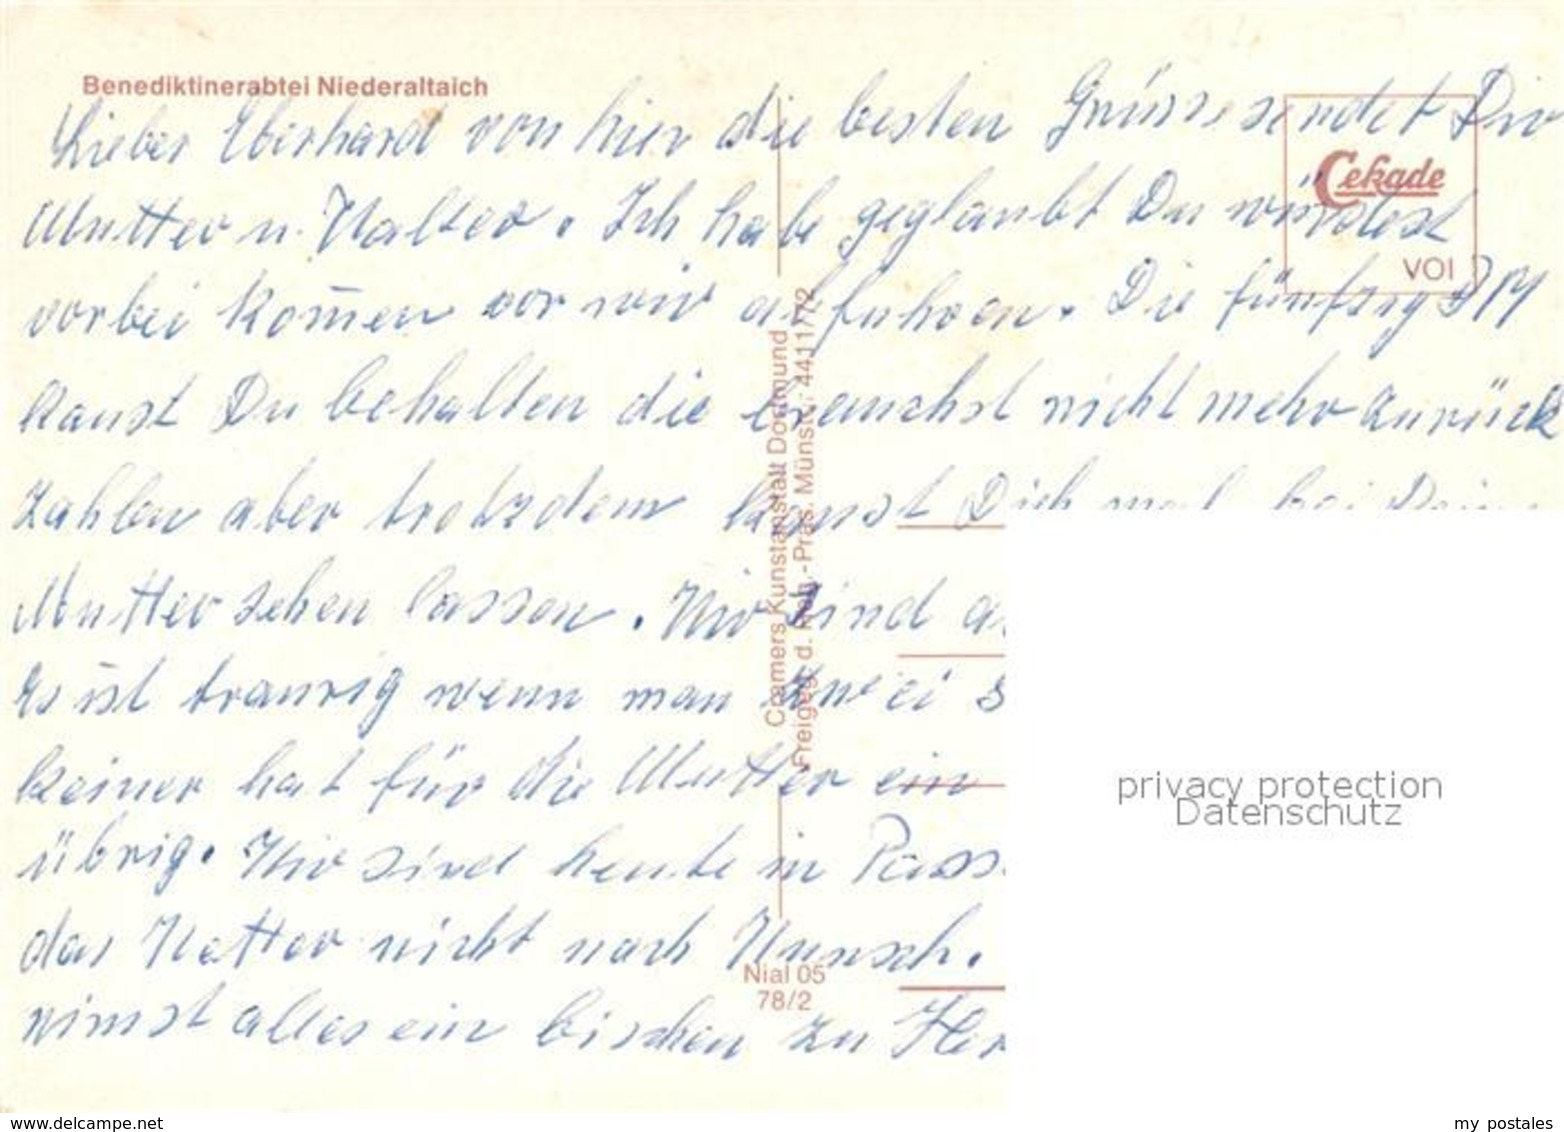 Benediktinerabtei Niederaltaich
Lieber Eberhard von hier die besten Grüsse sendet Dir
Mutter u. Walter. Ich habe geglaubt Du würdest
vorbei kom̄en vor wir abfuhren. Die fünfzig DM
kanst Du behalten die brauchst nicht mehr zurück
zahlen aber trotzdem kanst Dich mal bei Deine
Mutter sehen lassen. Wir sind
Es ist traurig wenn man zwei S
keiner hat für die Mutter ein
übrig. Wir sind heute in Pass
das Wetter nicht nach Wunsch.
nimst alles ein bischen zu Her
Cekade
VOI
Cramers Kunstanstalt Dortmund
Freigeg. d. Reg.-Präs. Münster 4411/72
Nial 05
78/2
privacy protection
Datenschutz
www.delcampe.net
my_postales